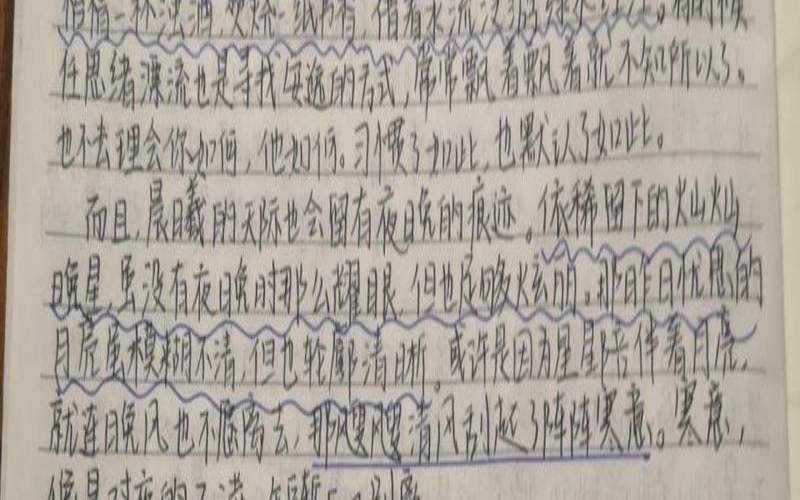 惜惜一杯浊酒,焚烧一纸书香,借着水流没
任思绪漂流也是寻找安逸的方式,常常飘着飘着就不知所以了。
也不去理会你如何,他如何。习惯了如此,也默认了如此。
而且,晨曦的天际也会留有夜晚的痕迹。依稀留下的灿灿
晚星,虽没有夜晚时那么耀眼,但也足够炫丽。那昨日忧愁的
月亮虽模糊不清,但也轮廓清晰。或许是因为星星陪伴着月亮,
就连晚风也不愿离去,那嗖嗖清风刮起了阵阵寒意。寒意,
便是对夜的不